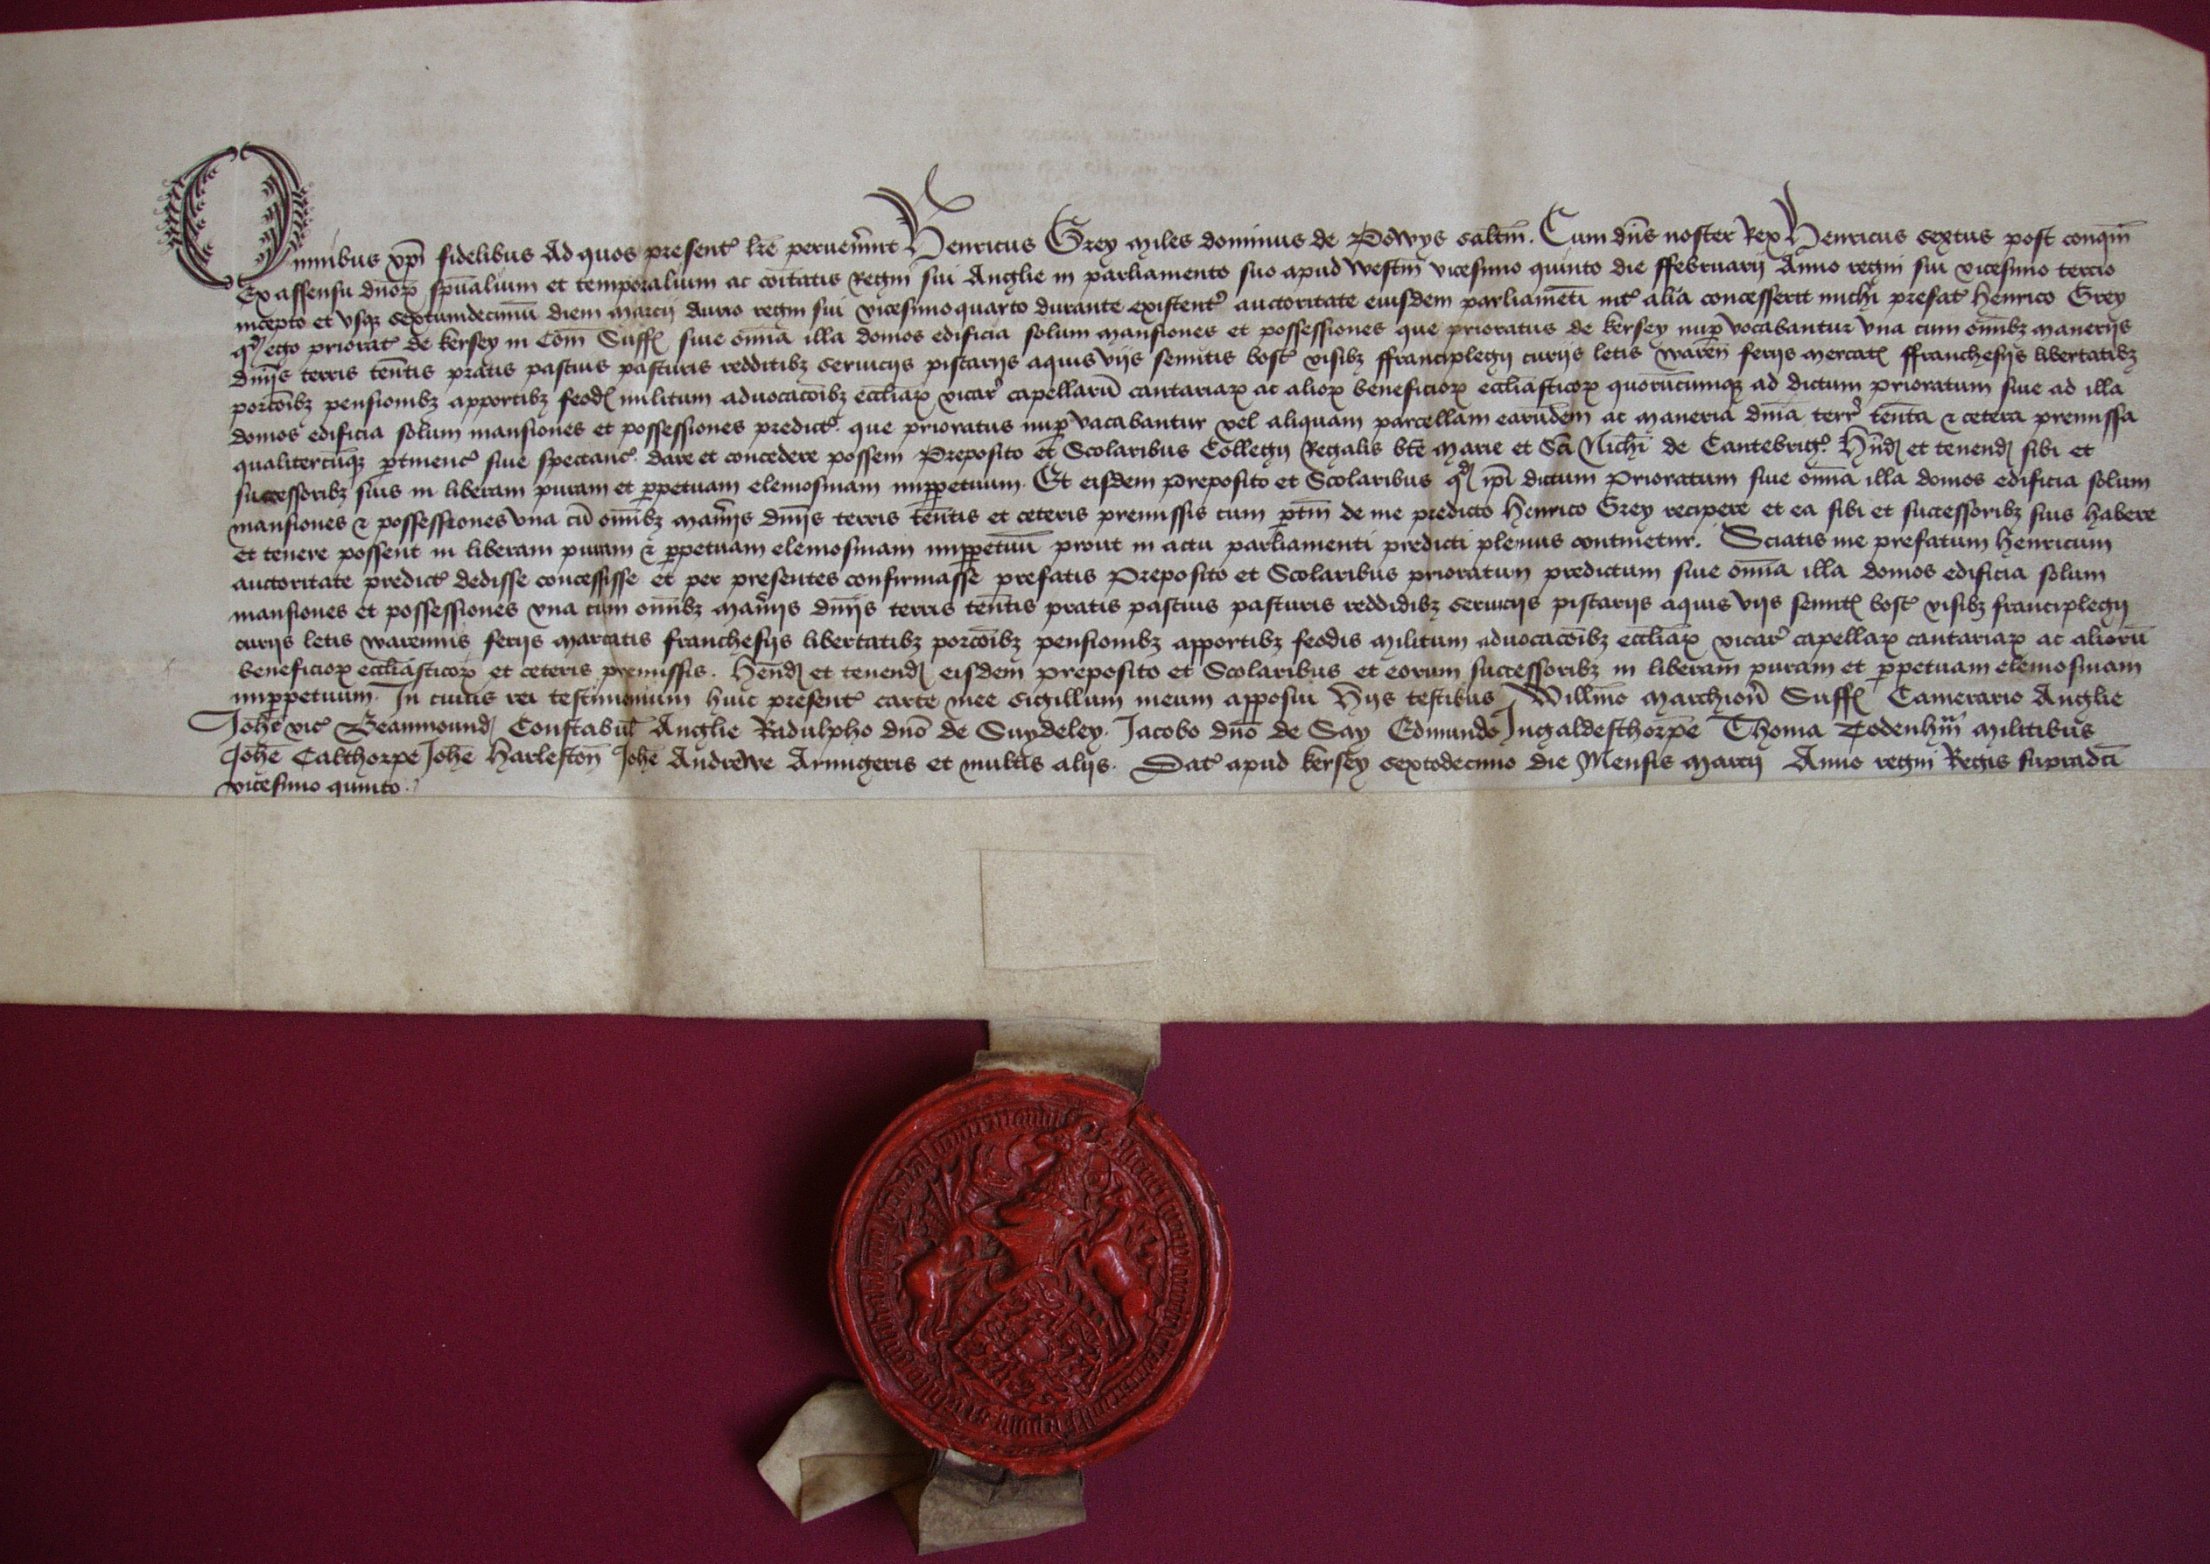 Omnibus xp̄i fidelibus Ad quos present' lr̄e peruen̄int Henricus Grey Miles dominus de Powys salt̄m. Cum dn̄s noster Rex Henricus sextus post conqm̄
Ex assensu dn̄oꝝ sp̄ualium et temporalium ac cōitatis Regni sui Anglie in parliamento suo apud Westm̄ vicesimo quinto die ffebruarij Anno regni sui vicesimo tercio
incepto et vsqꝫ sextumdecimū diem Marcij Anno regni sui vicesimoquarto durante existent' auctoritate eiusdem parliamēti int' alia concesserit michi prefat' Henrico Grey
qd' ego priorat' de Kersey in Com̄ Suff' siue om̄ia illa domos edificia solum mansiones et possessiones que prioratus de Kersey nup̱ vocabantur vna cum om̄ibꝫ manerijs
dn̄ijs terris ten̄tis pratis pascuis pasturis redditibꝫ seruicijs piscarijs aquis vijs semitis bosc' visibꝫ ffranciplegij curijs letis waren̄ ferijs mercat' ffranchesijs libertatibꝫ
porcōibꝫ pensionibꝫ apportibꝫ feod' militum aduocacōibꝫ eccl̄iaꝝ vicar' capellarū cantariaꝝ ac alioꝝ beneficioꝝ eccl̄iasticoꝝ quorūcumqꝫ ad dictum prioratum siue ad illa
domos edificia solum mansiones et possessiones predict' que prioratus nup̱ vacabantur vel aliquam parcellam earūdem ac maneria dn̄ia terr' ten̄ta ⁊ cetera premissa
qualitercūqꝫ p̱tinenc' siue spectanc' dare et concedere possem Preposito et Scolaribus Collegij Regalis bt̄e Marie et Sc̄i Nich̄i de Cantebrig' Hn̄d' et tenend' sibi et
successoribꝫ suis in liberam puram et p̱petuam elemosinam imp̱petuum. Et eisdem Preposito et Scolaribus qd' ip̄i dictum Prioratum siue om̄ia illa domos edificia solum
mansiones ⁊ possessiones vna cū om̄ibꝫ man̄ijs dn̄ijs terris ten̄tis et ceteris premissis cum p̱tin̄ de me predicto Henrico Grey recipere et ea sibi et successoribꝫ suis habere
et tenere possent in liberam puram ⁊ p̱petuam elemosinam imp̱petuū prout in actu parliamenti predicti plenius continetur. Sciatis me prefatum Henricum
auctoritate predict' dedisse concessisse et per presentes confirmasse prefatis Preposito et Scolaribus prioratum predictum siue om̄ia illa domos edificia solum
mansiones et possessiones vna cum om̄ibꝫ man̄ijs dn̄ijs terris ten̄tis pratis pascuis pasturis reddidibꝫ seruicijs piscarijs aquis vijs semit' bosc' visibꝫ franciplegij
curijs letis warennis ferijs marcatis franchesijs libertatibꝫ porcōibꝫ pensionibꝫ apportibꝫ feodis militum aduocacōibꝫ eccl̄iaꝝ vicar' capellaꝝ cantariaꝝ ac aliorū
beneficioꝝ eccl̄iasticoꝝ et ceteris premissis. Hēnd' et tenend' eisdem preposito et Scolaribus et eorum successoribꝫ in liberam puram et p̱petuam elemosinam
imp̱petuum. In cuius rei testimonium huic present' carte mee sigillum meum apposui Hijs testibus Willm̄o Marchion̄ Suff' Camerario Anglie
Joh̄e vic' Beaumound' Constabul' Anglie Radulpho dn̄o de Suydeley. Jacobo dn̄o de Say Edmundo Jngaldesthorpe Thoma Todenhm̄ militibus
Joh̄e Calthorpe Joh̄e Harleston̄ Joh̄e Andrewe Armigeris et multis alijs. Dat' apud Kersey sextodecimo die Mensis Marcij Anno regni Regis supradc̄i
vicesimo quinto.